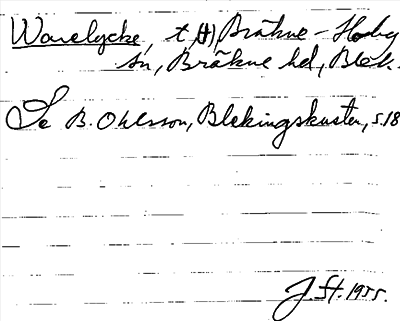 Warelycke, t. (H) Bräkne-Hoby
sn, Bräkne hd, Blek.
Se B. Ohlsson, Blekingskusten, s. 18
J. St. 1955.